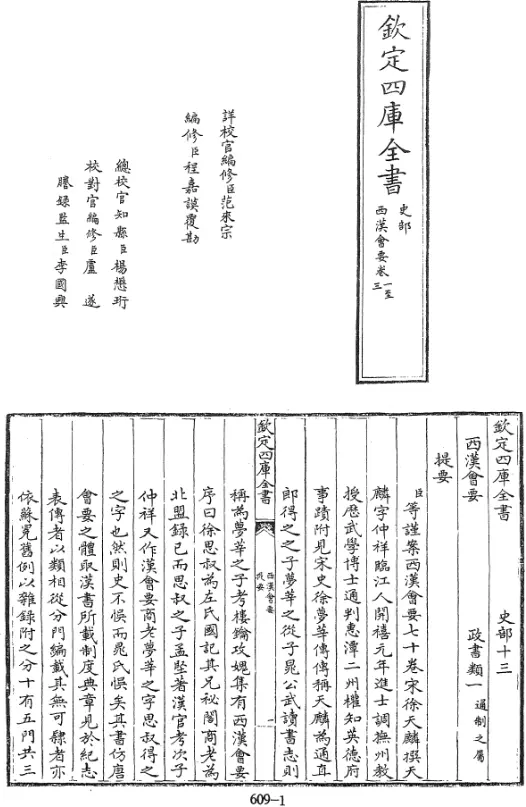 欽定四庫全書
史部
西漢會要卷一至三
詳校官編修臣范來宗
編修臣程嘉謨覆勘
總校官知縣臣楊懋珩
校對官編修臣盧遂
謄録監生臣李國興
欽定四庫全書
史部十三
西漢會要
政書類一
通制之屬
提要
臣等謹案西漢會要七十卷宋徐天麟撰天
麟字仲祥臨江人開禧元年進士調撫州教
授歷武學博士通判惠潭二州權知英德府
事蹟附見宋史徐夢莘傳傳稱天麟為通直
郎得之之子夢莘之從子晁公武讀書志則
欽定四庫全書
西漢會要
提要
一
稱為夢莘之子考樓鑰攻媿集有西漢會要
序曰徐思叔為左氏國記其兄秘閣商老為
北盟録已而思叔之子孟堅著漢官考次子
仲祥又作漢會要商老夢莘之字思叔得之
之字也然則史不悞而晁氏悞矣其書仿唐
會要之體取漢書所載制度典章見於紀志
表傳者以類相從分門編載其無可隸者亦
依蘇冕舊例以雜録附之分十有五門共三
609-1